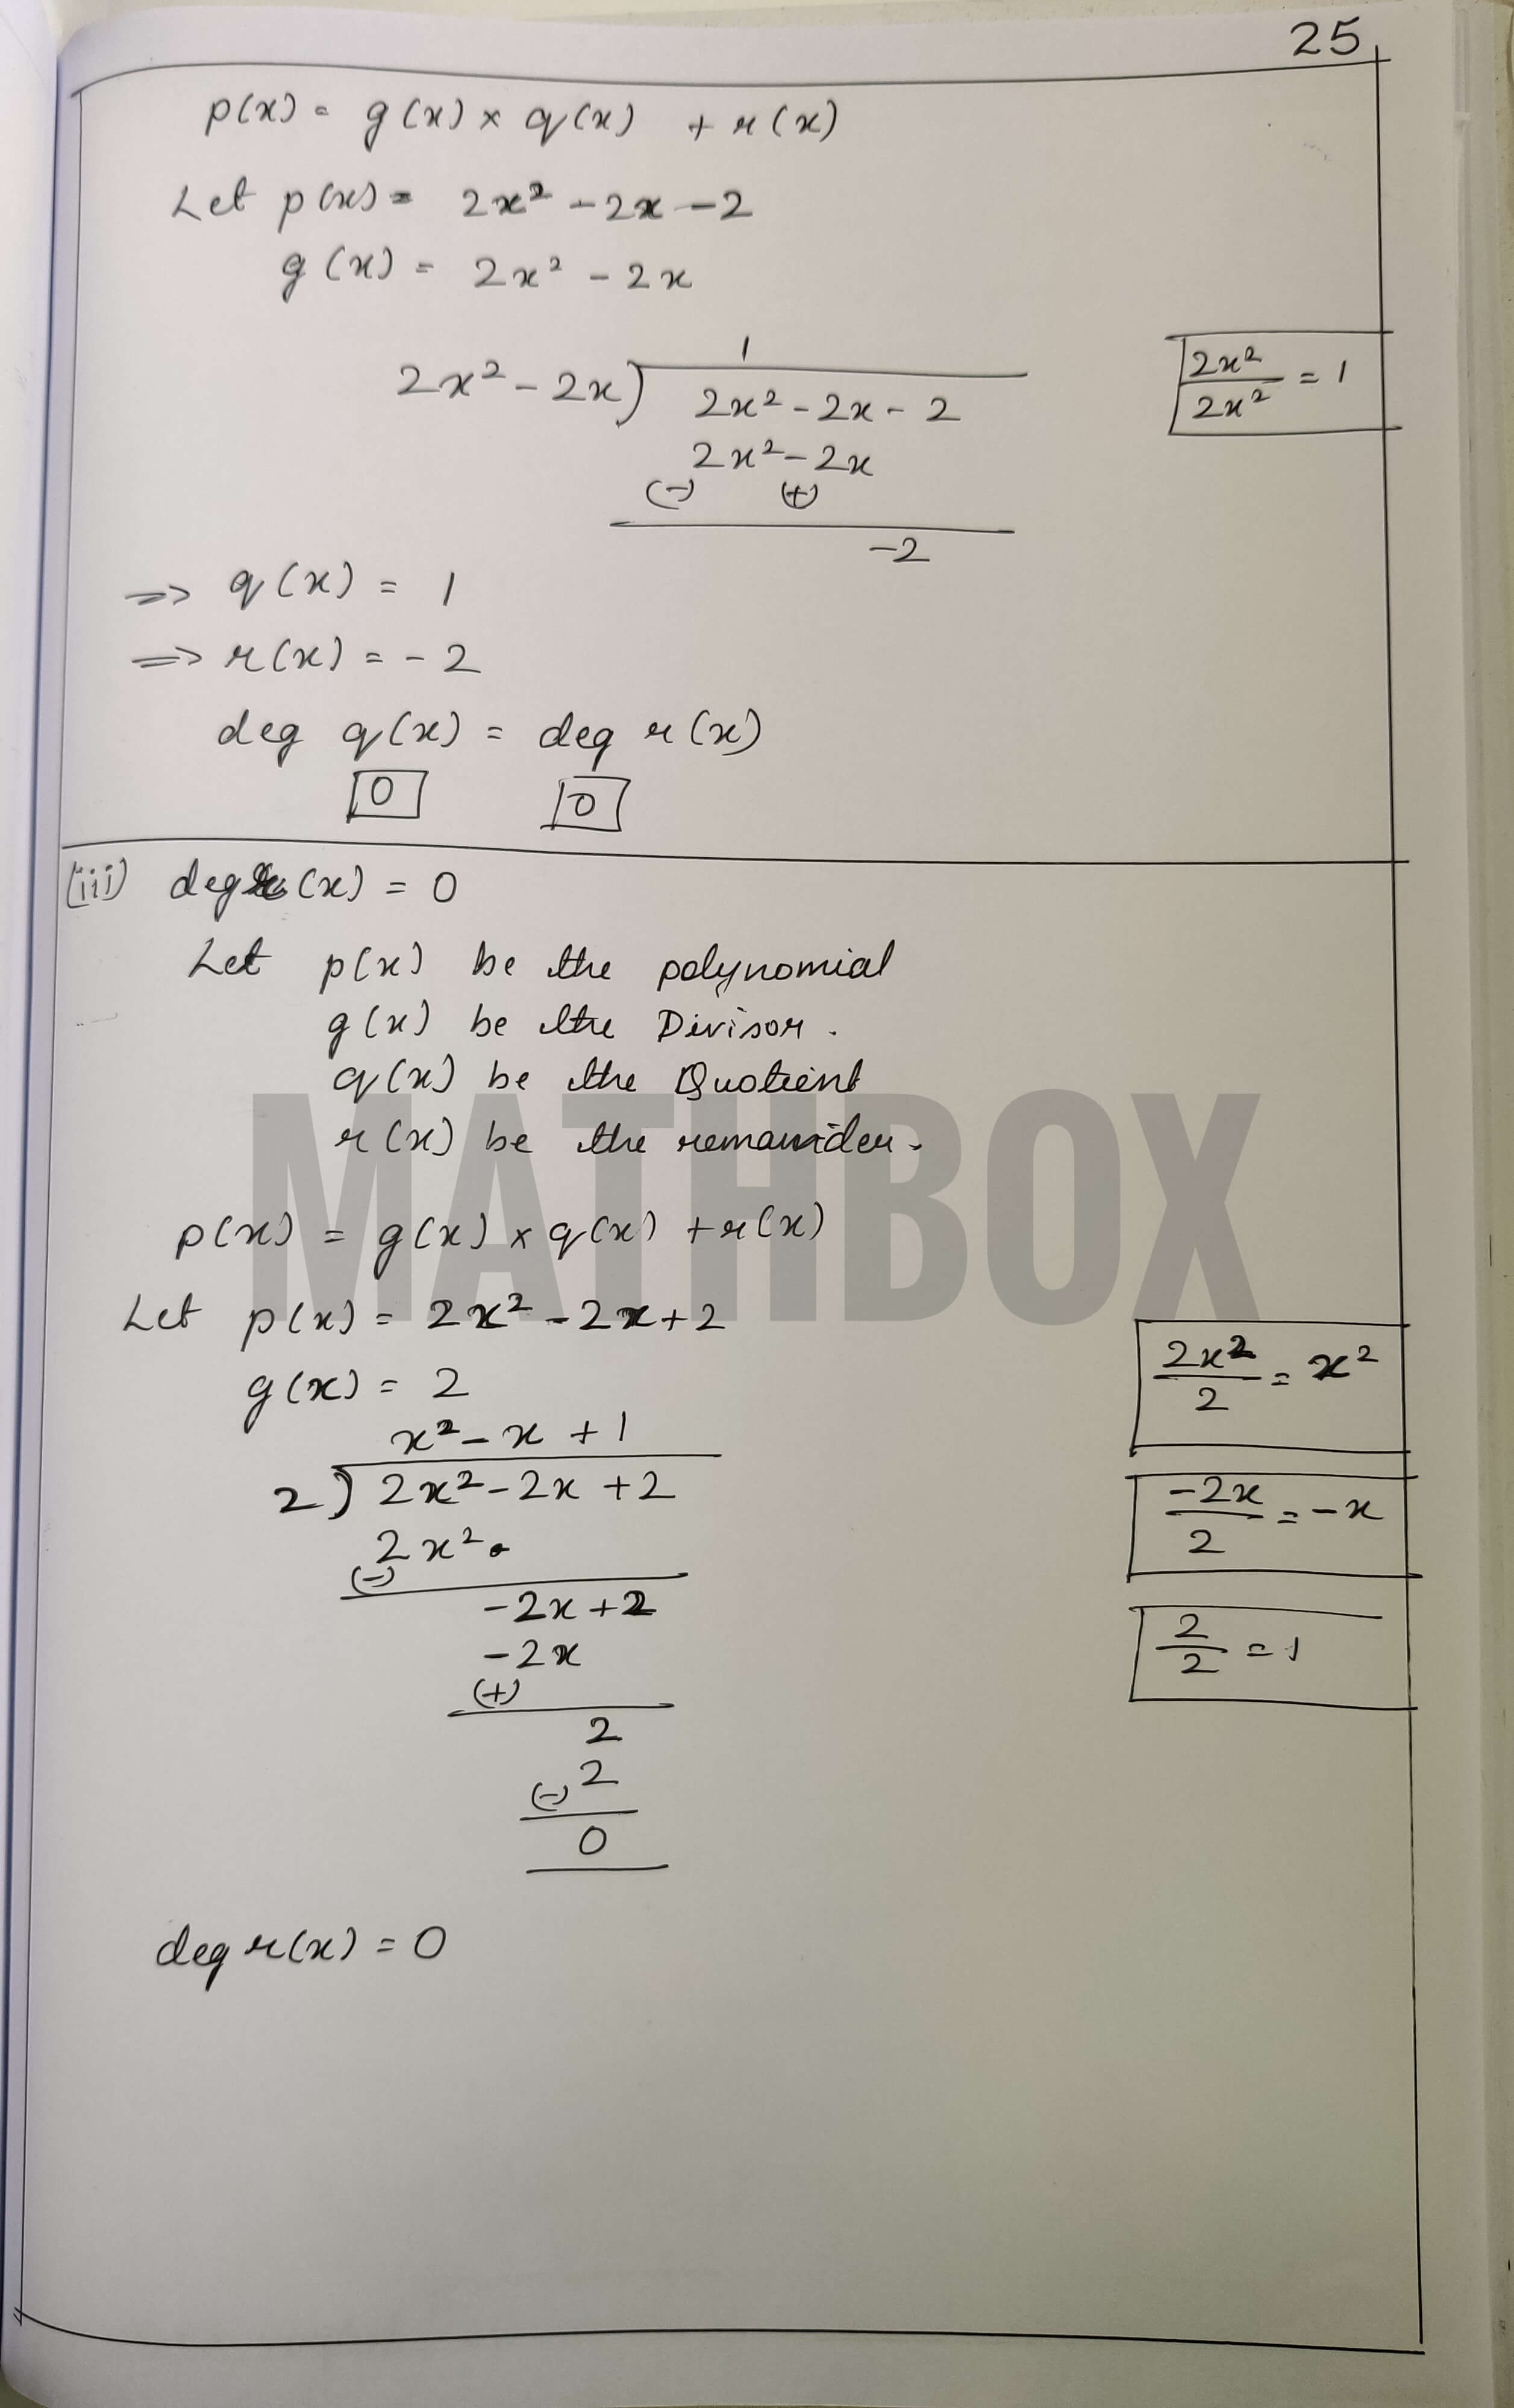 25
p(x) = g(x) × q(x) + r(x)
Let p(x) = 2x² - 2x - 2
g(x) = 2x² - 2x
1
2x² - 2x) 2x² - 2x - 2
2x²/2x² = 1
2x² - 2x
(-) (+)
-2
=> q(x) = 1
=> r(x) = -2
deg q(x) = deg r(x)
0 0
(iii) deg r(x) = 0
Let p(x) be the polynomial
g(x) be the Divisor.
q(x) be the Quotient
r(x) be the remainder.
MATHBOX
p(x) = g(x) × q(x) + r(x)
Let p(x) = 2x² - 2x + 2
g(x) = 2
2x²/2 = x²
x² - x + 1
2) 2x² - 2x + 2
-2x/2 = -x
2x²
(-)
-2x + 2
-2x
2/2 = 1
(+)
2
2
(-)
0
deg r(x) = 0